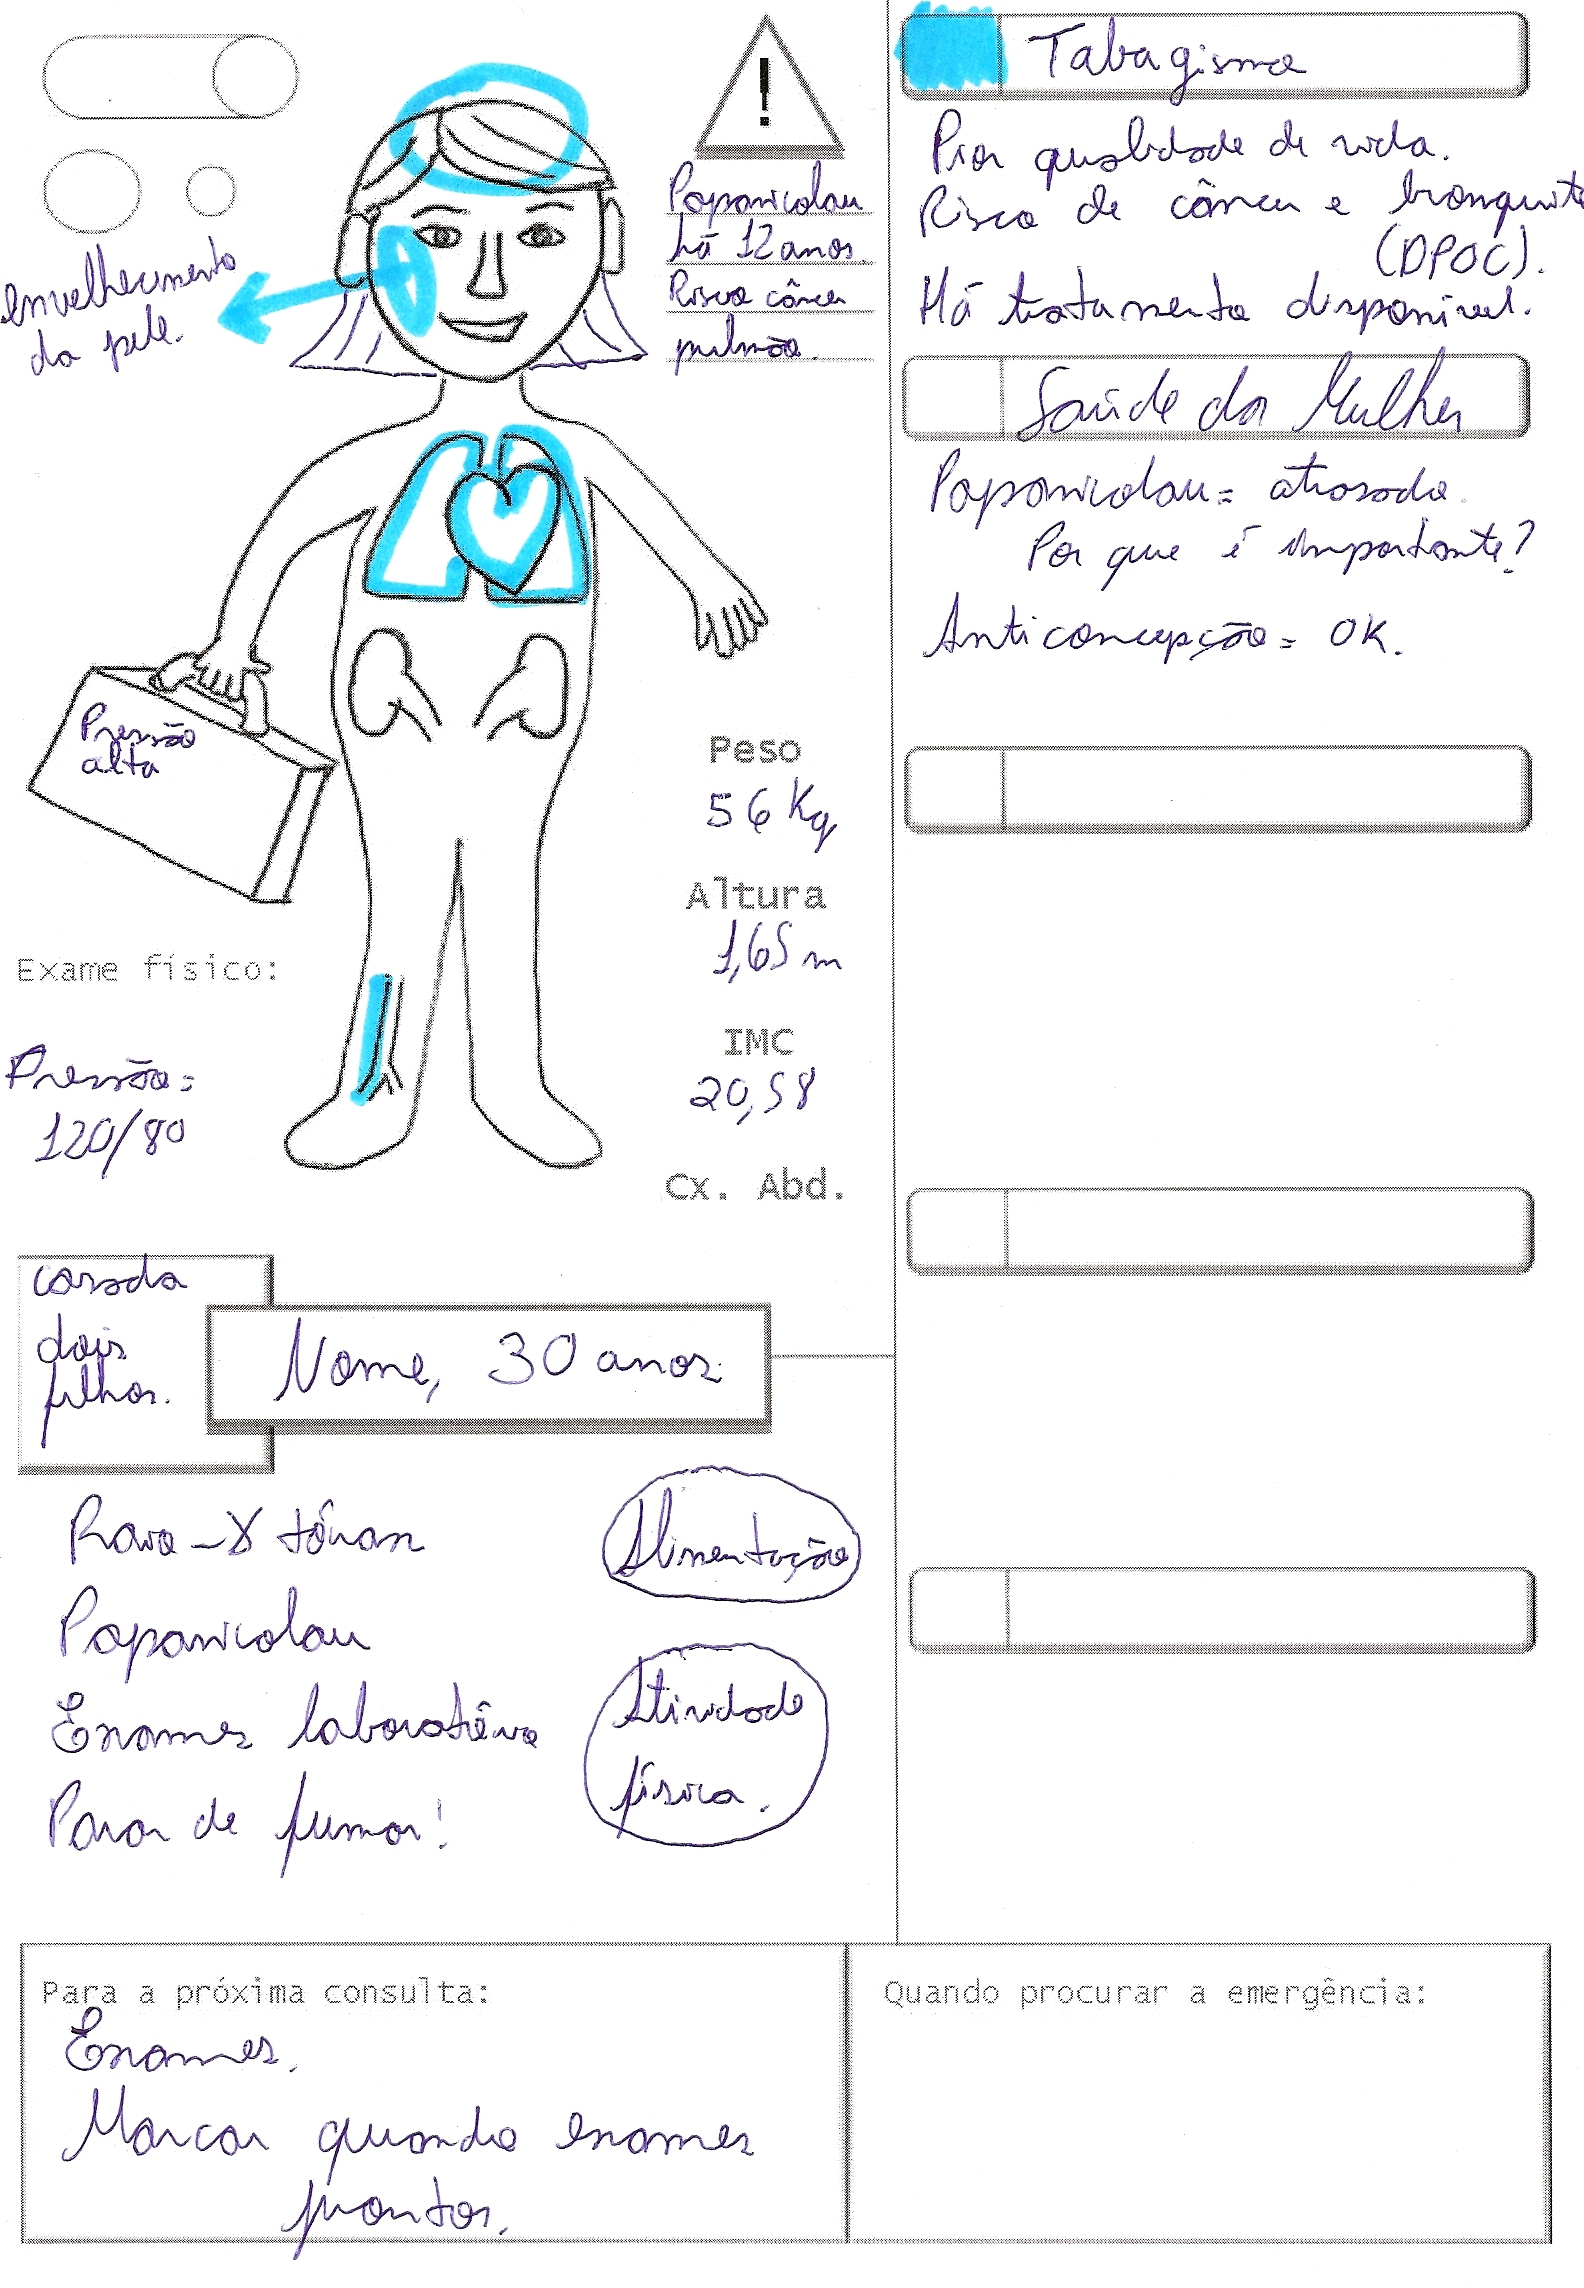 !
Papanicolau
há 12 anos.
Risco câncer
pulmão.
envelhecimento
da pele.
Pressão
alta
Peso
56 Kg
Altura
1,65 m
IMC
20,58
Cx. Abd.
Exame físico:
Pressão =
120/80
casada
dois
filhos.
Nome, 30 anos.
Raio-X tórax
Papanicolau
Exames laboratório
Parar de fumar!
Alimentação
Atividade
física.
Tabagismo
Pior qualidade de vida.
Risco de câncer e bronquite
(DPOC).
Há tratamento disponível.
Saúde da Mulher
Papanicolau = atrasado.
Por que é importante?
Anticoncepção = OK.
Para a próxima consulta:
Exames.
Marcar quando exames
prontos.
Quando procurar a emergência: